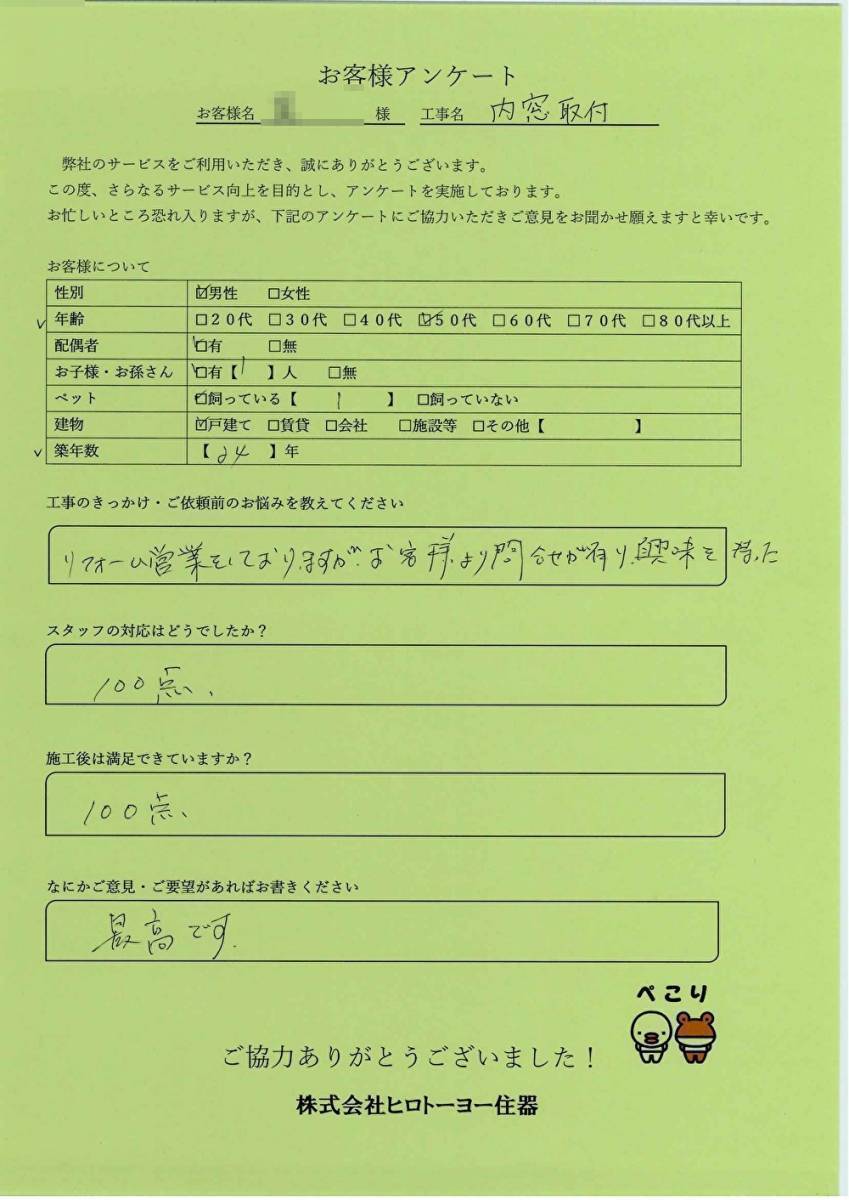 お客様アンケート
お客様名 様 工事名 内窓取付
弊社のサービスをご利用いただき、誠にありがとうございます。
この度、さらなるサービス向上を目的とし、アンケートを実施しております。
お忙しいところ恐れ入りますが、下記のアンケートにご協力いただきご意見をお聞かせ願えますと幸いです。
お客様について
性別 ☑男性 □女性
✓年齢 □20代 □30代 □40代 ☑50代 □60代 □70代 □80代以上
配偶者 ☑有 □無
お子様・お孫さん ☑有【1】人 □無
ペット ☑飼っている【1】 □飼っていない
建物 ☑戸建て □賃貸 □会社 □施設等 □その他【 】
✓築年数 【24】年
工事のきっかけ・ご依頼前のお悩みを教えてください
リフォーム営業をしておりますが、お客様より問合せが有り、興味を持った
スタッフの対応はどうでしたか？
100点、
施工後は満足できていますか？
100点、
なにかご意見・ご要望があればお書きください
最高です.
ぺこり
ご協力ありがとうございました！
株式会社ヒロトーヨー住器